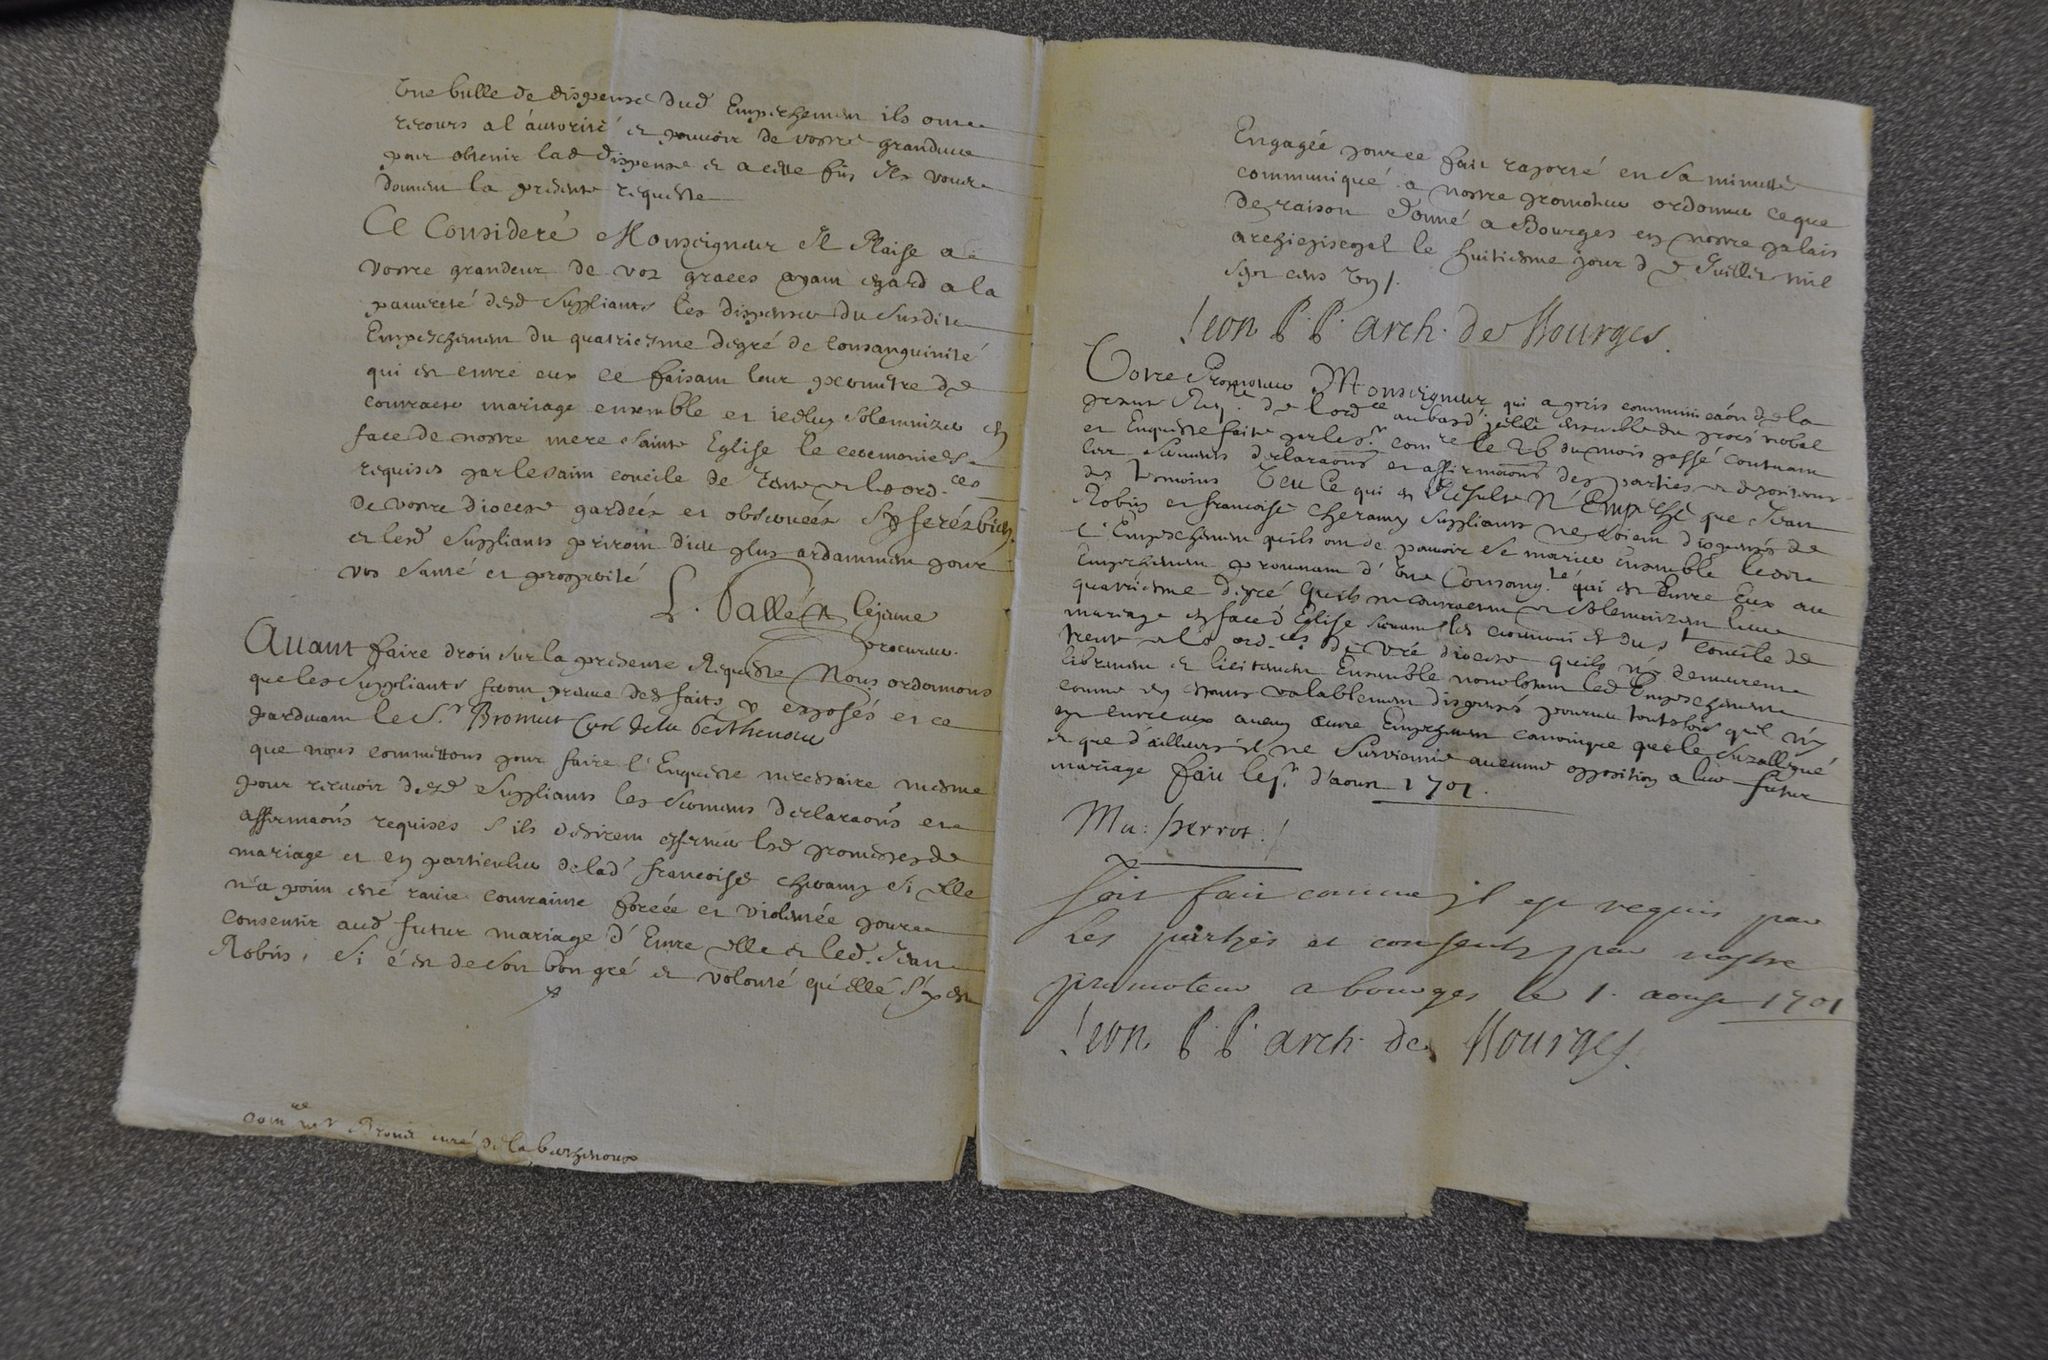 Une bulle de dispense dud Empeschement ils ont
recours a l'autorité et pouvoir de vostre grandeur
pour obtenir lad dispense et a cette fin Ils vous
donnent la presente requeste
Ce Consideré Monseigneur Il Plaise a
vostre grandeur de voz graces ayant egard a la
pauvreté desd Suppliants les dispenser du susdit
Empeschement du quatriesme degré de consanguinité
qui est entre eux ce faisant leur permettre de
contracter mariage ensemble et iceluy solemnizer en
face de nostre mere Sainte Eglise le ceremonies
requises par le saint concile de Trente et les ord.ces
de vostre diocese gardées et observées Et ferés bien
et lesd Suppliants priront dieu plus ardamment pour
vos santé et prosperité
L. Vallée lejeune
procureur.
Avant faire droit sur la presente Requeste Nous ordonnons
que les Suppliants feront preuve des faits y exposés et ce
pardevant le S.r Curé de la Berthenoux
que nous committons pour faire l'Enqueste necessaire mesme
pour recevoir desd Suppliants les sermens declaraõns et
affirmaõns requises s'ils desirent effectuer lesd promesses de
mariage et en particulier de lad francoise cheramy si elle
n'a point esté ravie contrainte forcée et violentée pour
consentir aud futur mariage d'Entre elle et led. Jean
Robin, si c'est de son bon gré et volonté qu'elle s'y est
curé de la berthenoux
Engagée pour ce fait raporté en sa minutte
communiqué a nostre promoteur ordonner ce que
de raison donné a Bourges en nostre palais
archiepiscopal le huitiesme jour de Juillet mil
sept cens un /.
Leon P. P. arch. de Bourges.
Votre Promoteur Monseigneur qui a pris communicaõn de la
presente Req.te de l'ord.ce au bas d'icelle ensemble du procés verbal
et Enqueste faite par le s.r com.re le 26 du mois passé contenant
les sermens declaraõns et affirmaõns des parties et depositions
des temoins Veu Ce qui en Resulte N'Empesche que Jean
Robin et francoise cheramy suppliants ne soient dispensés de
l'Empeschement qu'ils ont de pouvoir se marier Ensemble ledit
Empeschement provenant d'Une Consang.té qui est Entre Eux au
quatriesme degré qu'ils ne contractent et solemnizent leur
mariage en face d'Eglise suivant les ceremonies du s.t Concile de
trente et les ord.ces de vre diocese qu'ils n'y demeurent
librement et licitement Ensemble nonobstant led Empeschement
comme en estants valablement dispensés pourveu toutefois qu'il n'y
ayt entre eux aucun autre Empeschement canonique que le susallegué
et que d'ailleurs il ne survienne aucune opposition a leur futur
mariage fait le p.r d'aoust 1701.
Ma: perrot./
soit fait comme il est requis par
les parties et consenty par nostre
promoteur a bourges le 1. aoust 1701
Leon P. P. arch. de Bourges.